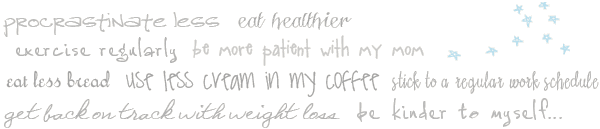 procrastinate less eat healthier
exercise regularly be more patient with my mom
eat less bread use less cream in my coffee stick to a regular work schedule
get back on track with weight loss be kinder to myself...